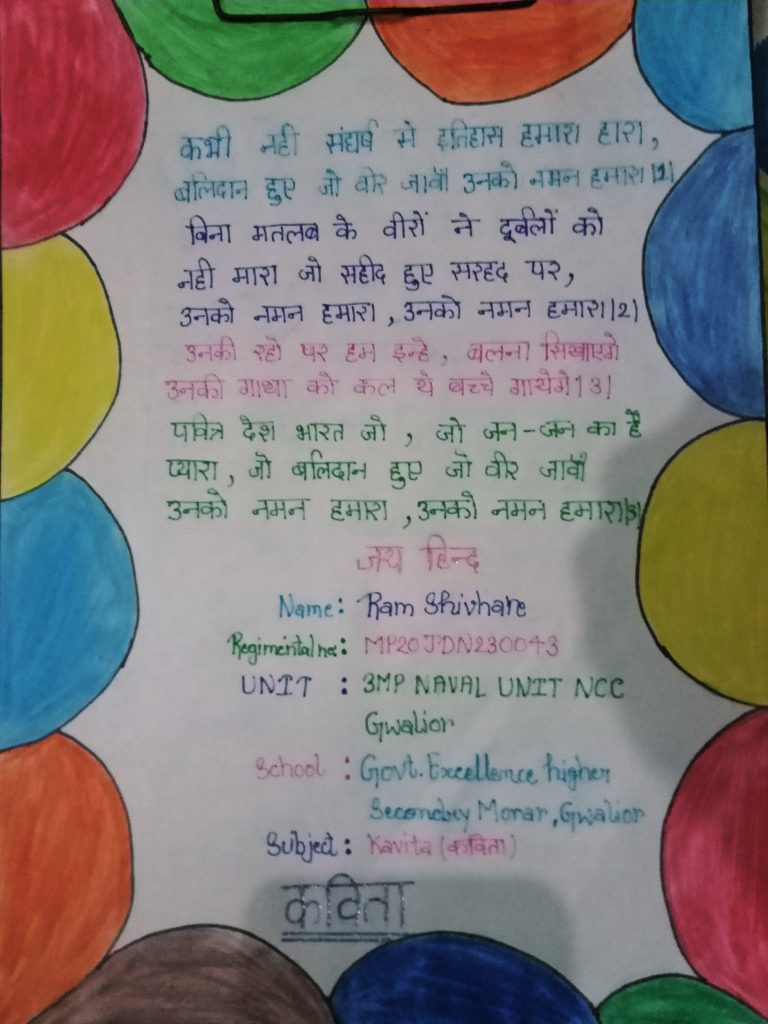 कभी नही संघर्ष से इतिहास हमारा हारा,
बलिदान हुए जो वीर जावाँ उनको नमन हमारा।1।
बिना मतलब के वीरों ने दूर्बलों को
नही मारा जो सहीद हुए सरहद पर,
उनको नमन हमारा, उनको नमन हमारा।2।
उनकी रहो पर हम इन्हे, चलना सिखाएगे
उनकी गाथा को कल ये बच्चे गायेगे।3।
पावित्र देश भारत जो, जो जन-जन का है
प्यारा, जो बलिदान हुए जो वीर जावाँ
उनको नमन हमारा, उनको नमन हमारा।3।
जय हिन्द
Name: Ram Shivhare
Regimental no: MP20JDN230043
UNIT : 3MP NAVAL UNIT NCC
Gwalior
School : Govt. Excellence higher
Secondry Morar, Gwalior
Subject: Kavita (कविता)
कविता